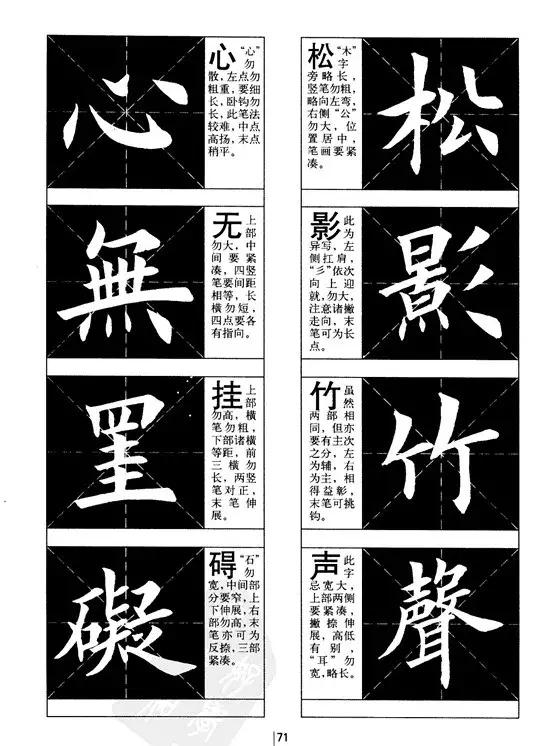 松
松“木”字
旁略长，
竖笔勿粗，
略向左弯，
右侧“公”
勿大，位
置居中，
笔画要紧
凑。
影
影此为
异写，左
侧扛肩，
“彡”依次
向上迎
就，勿大，
注意诸撇
走向，末
笔可为长
点。
竹
竹虽然
两部相
同，但亦
要有主次
之分，左
为辅，右
为主，相
得益彰，
末笔可挑
钩。
聲
声此字
忌宽大，
上部两侧
要紧凑，
撇捺伸
展，高低
有别，
“耳”勿
宽，略长。
心
心“心”勿
散，左点勿
粗重，要细
长，卧钩勿
长，此笔法
较难，中点
高扬，末点
稍平。
無
无上部
勿大，中
间要紧
凑，四竖
笔要间距
相等，长
横勿短，
四点要各
有指向。
罣
挂上部
勿高，横
笔勿粗，
下部诸横
等距，前
三横勿
长，两竖
笔对正，
末笔伸
展。
礙
碍“石”勿
宽，中间部
分要窄，上
下伸展，右
部勿高，末
笔亦可为
反捺，三部
紧凑。
71